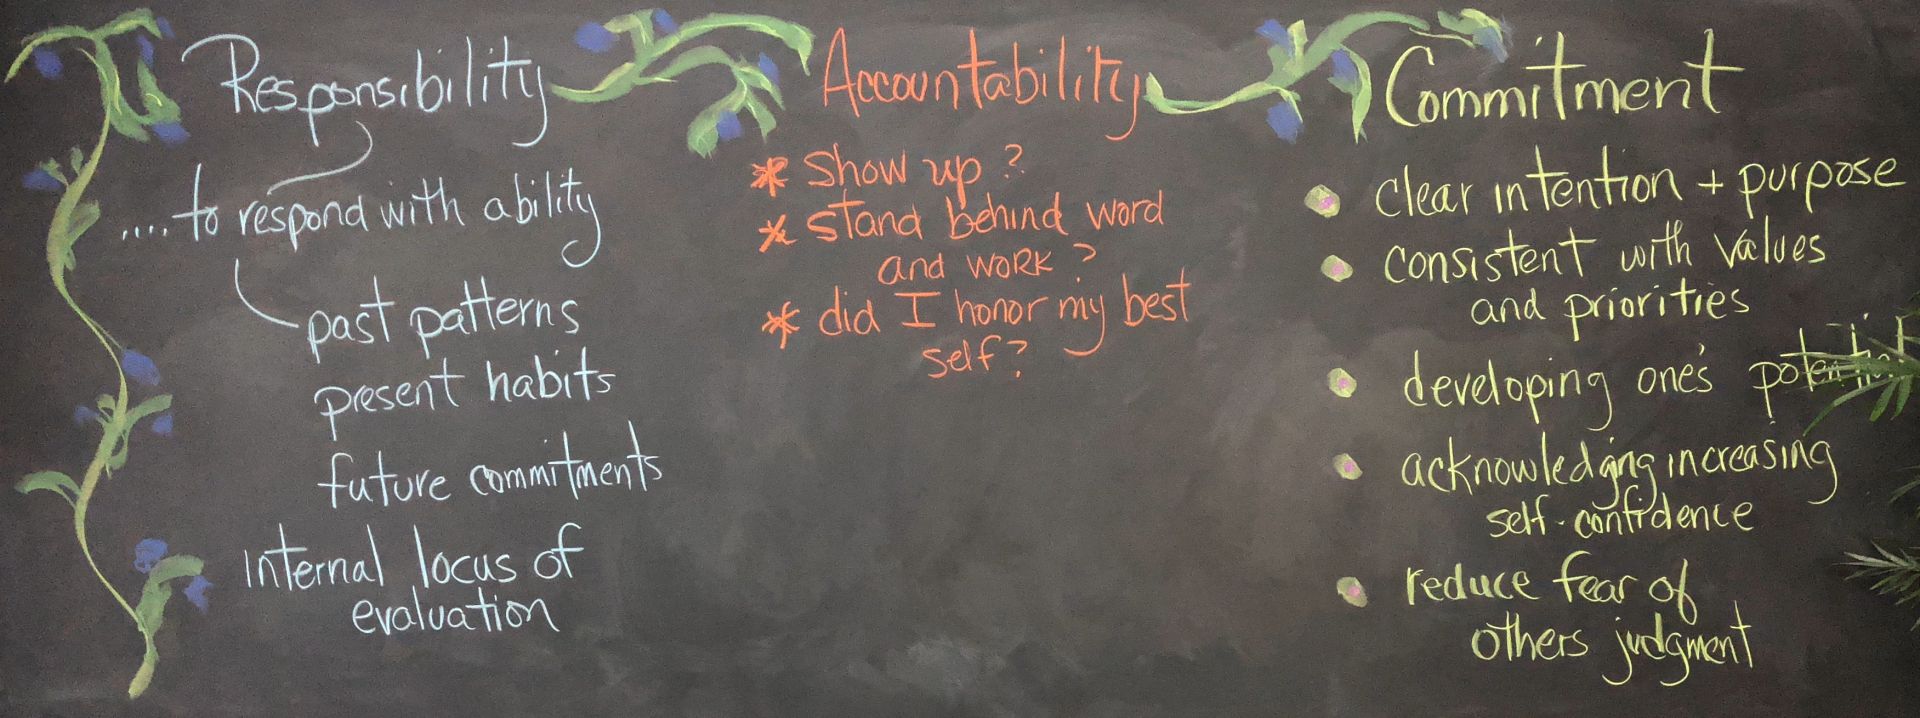 Responsibility
.... to respond with ability
past patterns
present habits
future commitments
internal locus of
evaluation
Accountability
* show up?
* stand behind word
and work?
* did I honor my best
self?
Commitment
clear intention + purpose
consistent with values
and priorities
developing one's potential
acknowledging increasing
self-confidence
reduce fear of
others judgment